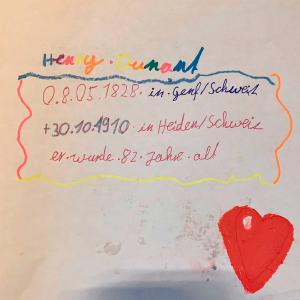 Henry · Dunant
0.8.05.1828 · in · Genf/Schweiz
+30.10.1910 · in Heiden/Schweiz
er · wurde · 82 · Jahre · alt